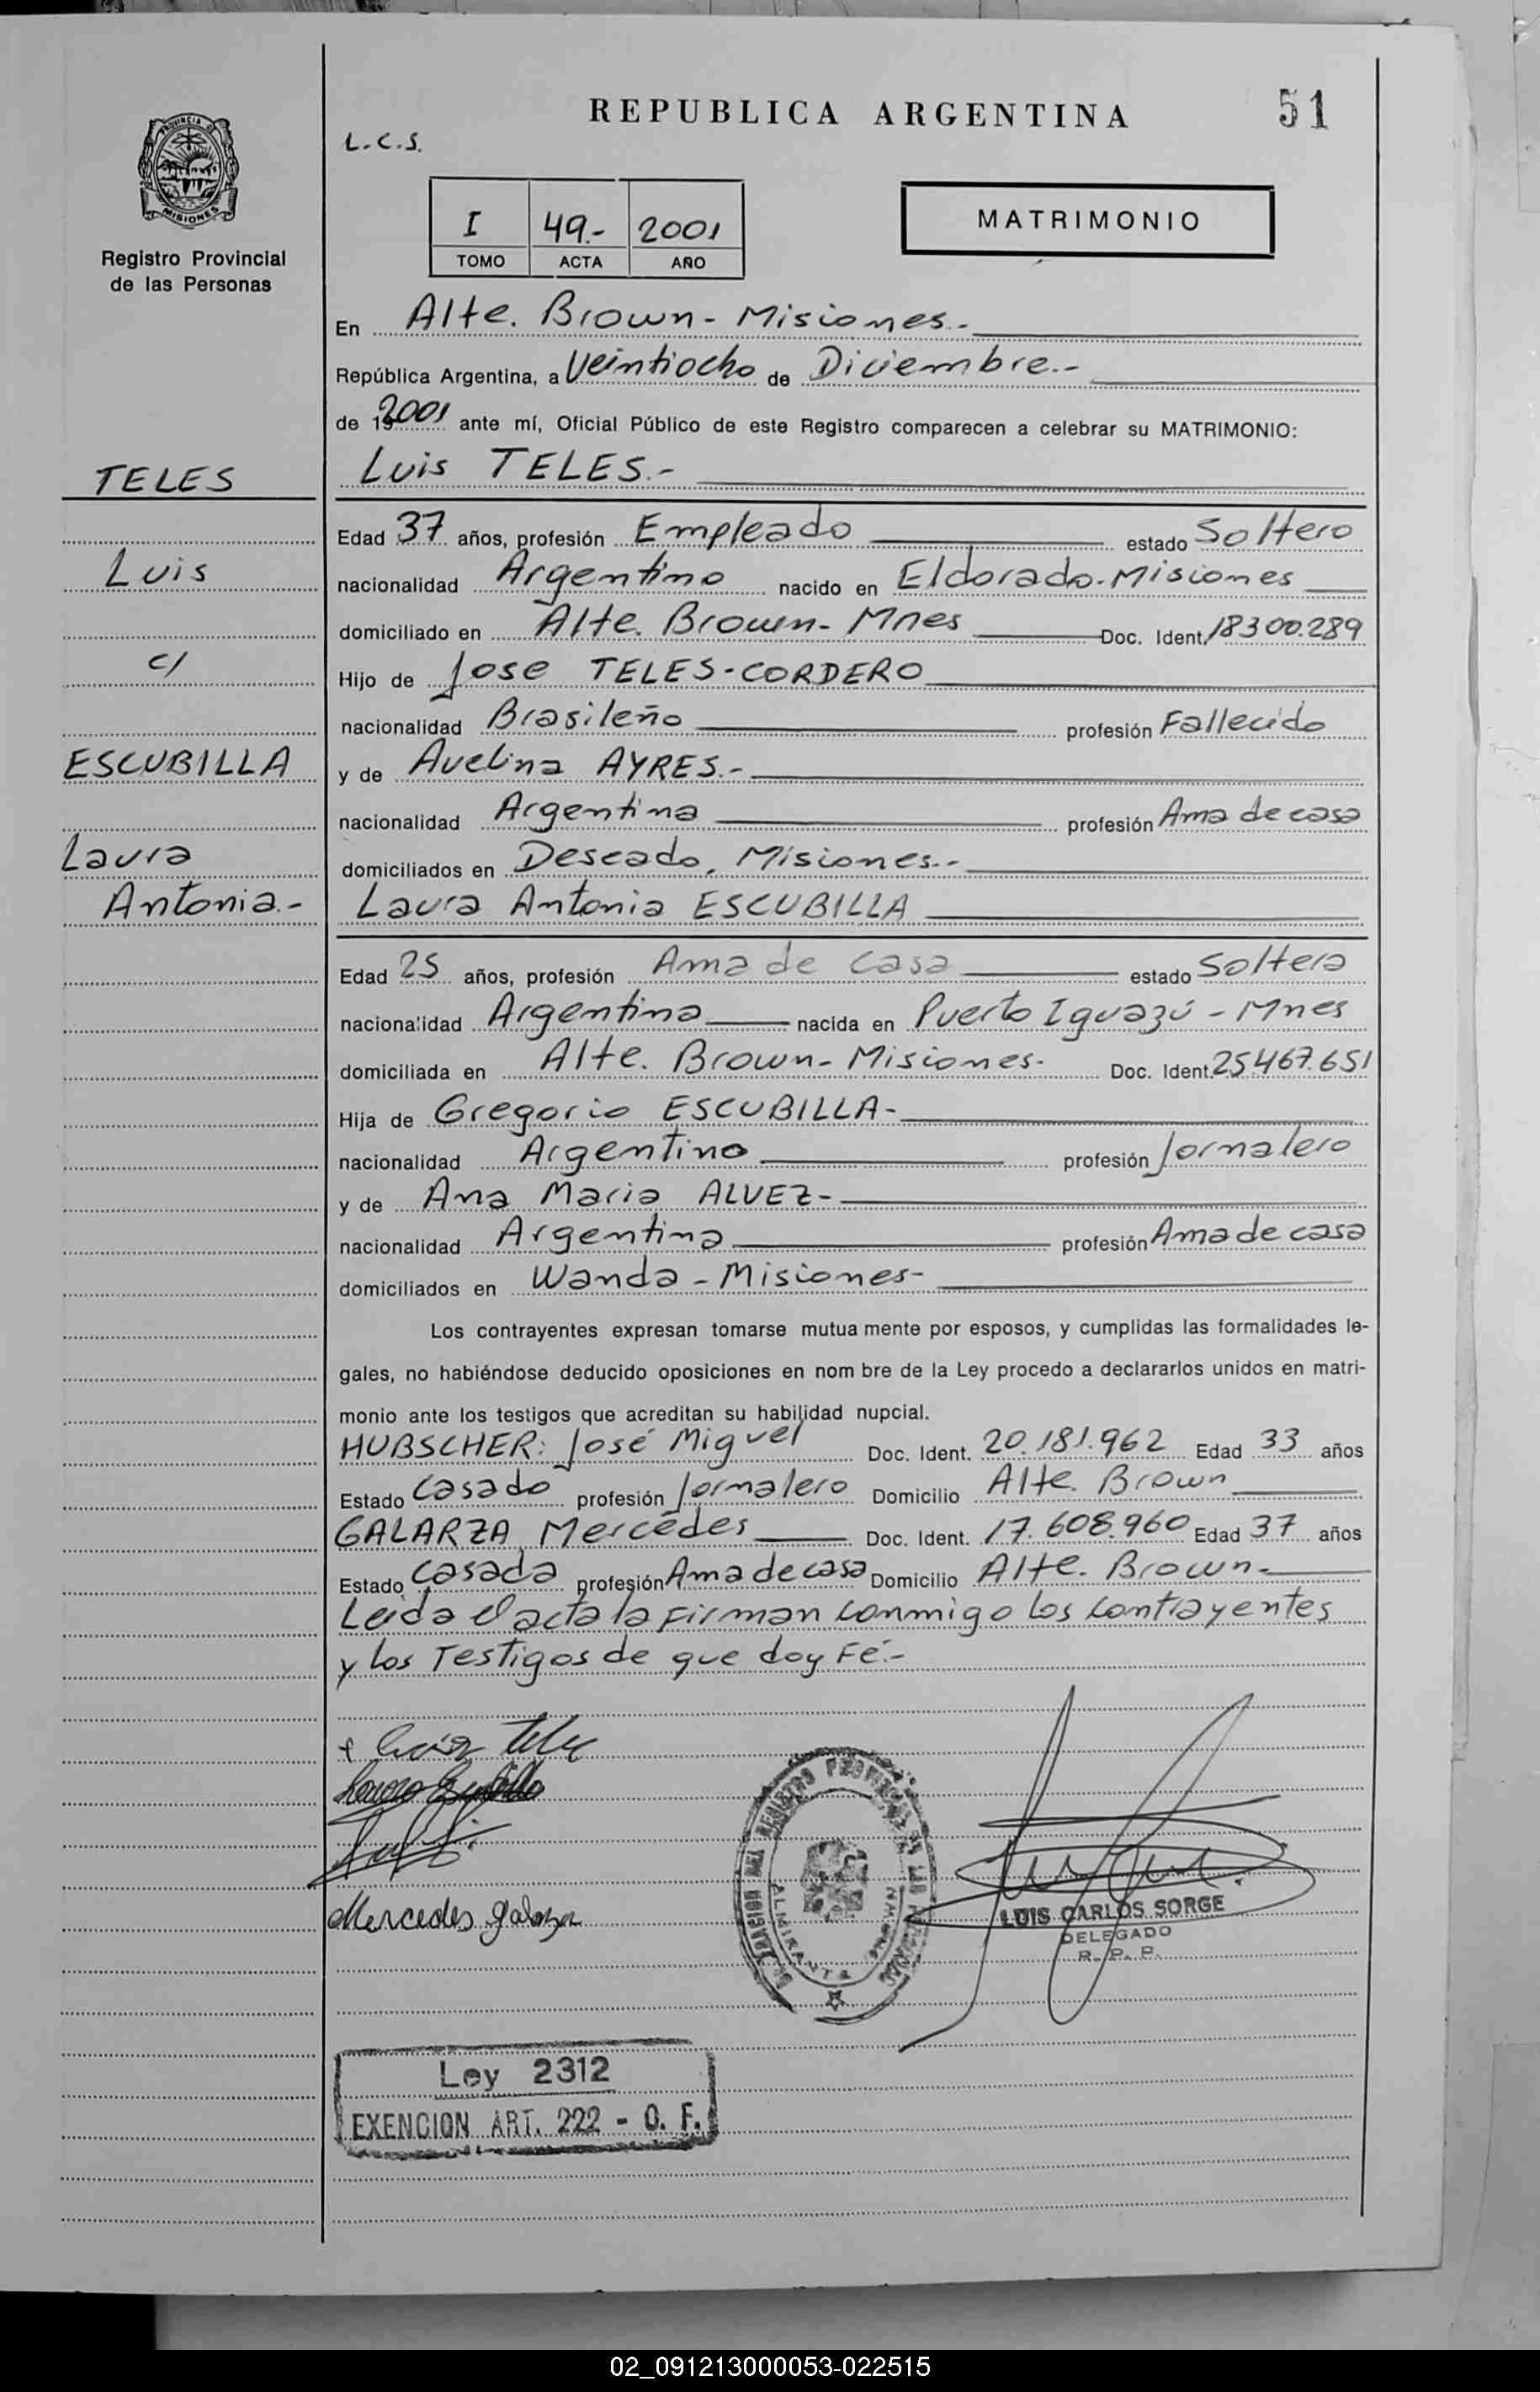 REPUBLICA ARGENTINA
51
L.C.S.
PROVINCIA
MISIONES
Registro Provincial
de las Personas
I 49.- 2001
TOMO ACTA AÑO
MATRIMONIO
En Alte. Brown - Misiones.-
República Argentina, a Veintiocho de Diciembre.-
de 2001 ante mí, Oficial Público de este Registro comparecen a celebrar su MATRIMONIO:
TELES
Luis TELES.-
Edad 37 años, profesión Empleado estado Soltero
Luis
nacionalidad Argentino nacido en Eldorado-Misiones
domiciliado en Alte. Brown - Mnes Doc. Ident. 18300.289
c/
Hijo de Jose TELES-CORDERO
nacionalidad Brasileño profesión Fallecido
ESCUBILLA
y de Avelina AYRES.-
nacionalidad Argentina profesión Ama de casa
Laura
domiciliados en Deseado, Misiones.-
Antonia.-
Laura Antonia ESCUBILLA
Edad 25 años, profesión Ama de casa estado Soltera
nacionalidad Argentina nacida en Puerto Iguazú - Mnes
domiciliada en Alte. Brown - Misiones- Doc. Ident. 25.467.651
Hija de Gregorio ESCUBILLA-
nacionalidad Argentino profesión Jornalero
y de Ana Maria ALVEZ-
nacionalidad Argentina profesión Ama de casa
domiciliados en Wanda - Misiones-
Los contrayentes expresan tomarse mutua mente por esposos, y cumplidas las formalidades le-
gales, no habiéndose deducido oposiciones en nom bre de la Ley procedo a declararlos unidos en matri-
monio ante los testigos que acreditan su habilidad nupcial.
HUBSCHER: José Miguel Doc. Ident. 20.181.962 Edad 33 años
Estado Casado profesión Jornalero Domicilio Alte. Brown
GALARZA Mercedes Doc. Ident. 17.608.960 Edad 37 años
Estado Casada profesión Ama de casa Domicilio Alte. Brown-
Leida el acta la firman conmigo los contrayentes
y los Testigos de que doy Fé.-
Mercedes Galarza
ALMIRANTE BROWN
LUIS CARLOS SORGE
DELEGADO
R. P. P.
Ley 2312
EXENCION ART. 222 - O. F.
02_091213000053-022515